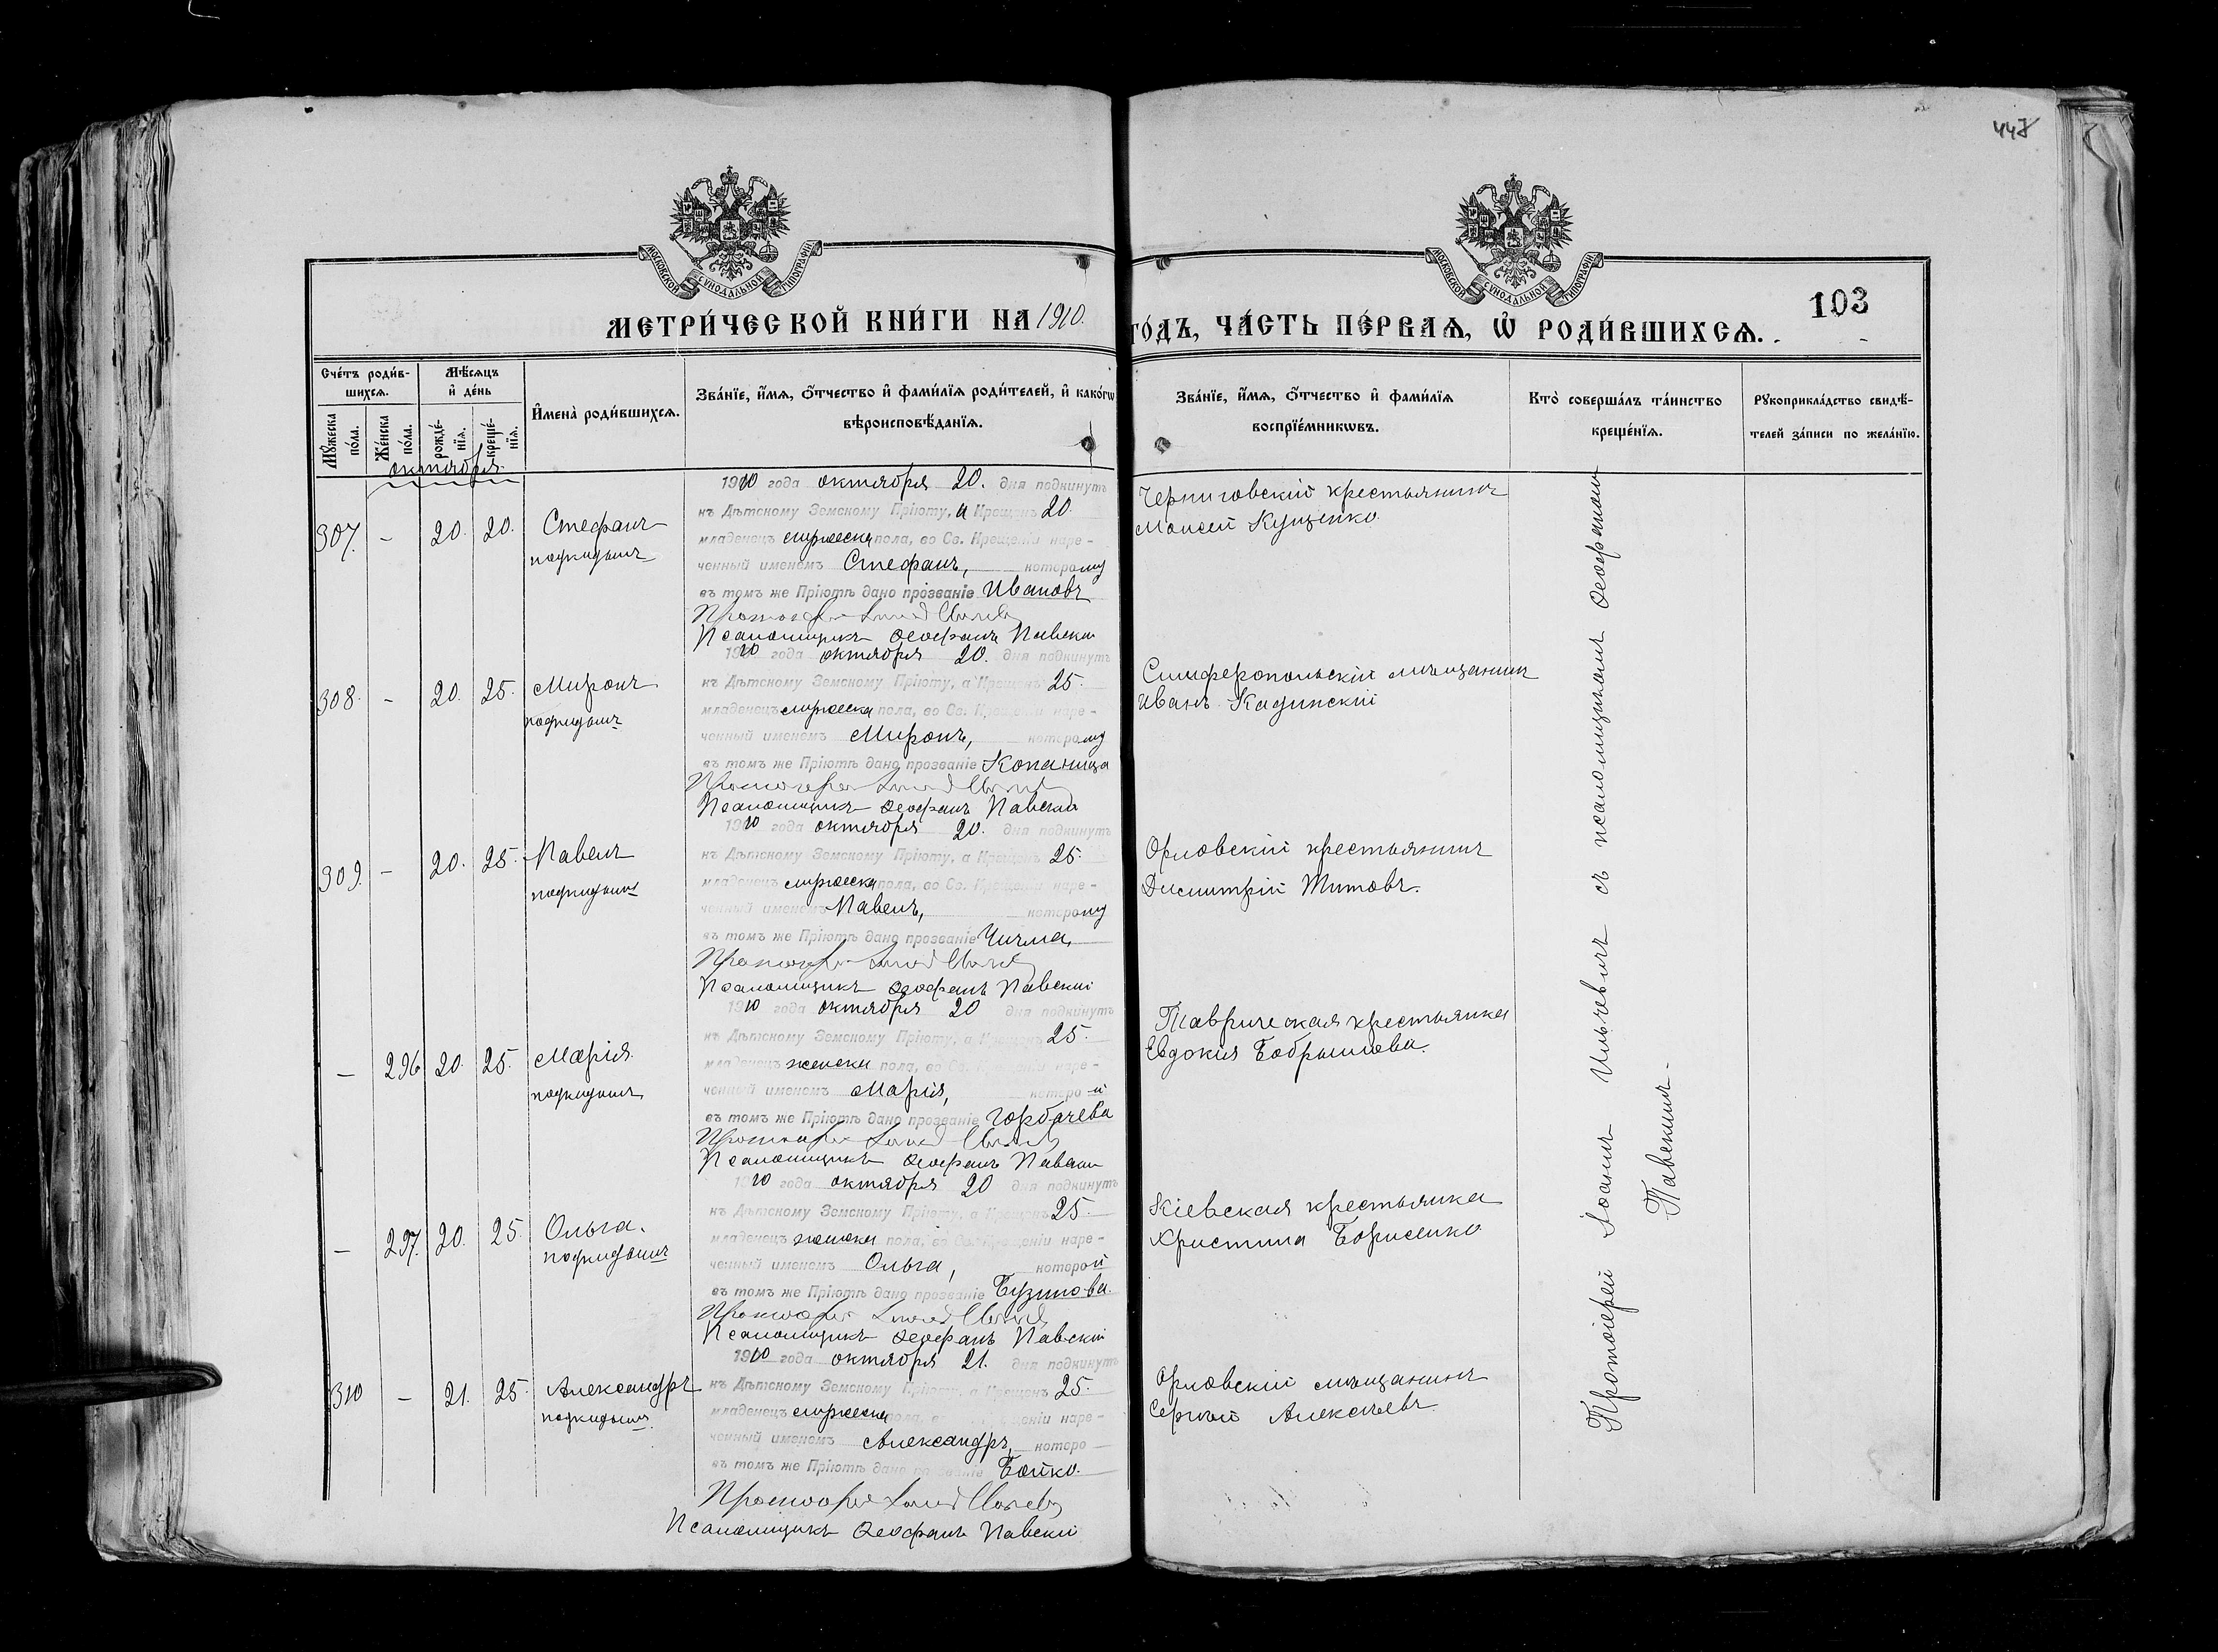 447
МОСКОВСКОЙ СѴНОДАЛЬНОЙ ТИПОГРАФІИ
МОСКОВСКОЙ СѴНОДАЛЬНОЙ ТИПОГРАФІИ
МЕТРИ́ЧЕСКОЙ КНИ́ГИ НА 1910.
ГО́ДЪ, ЧА́СТЬ ПЕ́РВАѦ, Ѡ҆ РОДИ́ВШИХСѦ.
103
Счє́тъ роди́в-
шихсѧ.
Мꙋ́жеска по́ла.
Же́нска по́ла.
Мѣ́сѧцъ
и҆ де́нь
рожде́-нїѧ.
креще́-нїѧ.
И҆мена̀ роди́вшихсѧ.
Зва́нїе, и҆́мѧ, ѻ҆́тчество и҆ фами́лїѧ роди́телей, и҆ како́гѡ
вѣроисповѣ́данїѧ.
Зва́нїе, и҆́мѧ, ѻ҆́тчество и҆ фами́лїѧ
воспрїе́мникѡвъ.
Кто̀ соверша́лъ та́инство
креще́нїѧ.
Рꙋкоприкла́дство свидѣ́-
телей за́писи по жела́нїю.
октября
307. - 20. 20. Стефанъ
подкидышъ
1910 года октября 20. дня подкинутъ
къ Дѣтскому Земскому Пріюту, а Крещенъ 20
младенецъ мужеска пола, во Св. Крещеніи наре-
ченный именемъ Стефанъ, которому
въ томъ же Пріютѣ дано прозваніе Ивановъ
Псаломщикъ Ѳеофанъ Павскій
Черниговскій крестьянинъ
Моисей Куценко
308. - 20. 25. Миронъ
подкидышъ
1910 года октября 20. дня подкинутъ
къ Дѣтскому Земскому Пріюту, а Крещенъ 25.
младенецъ мужеска пола, во Св. Крещеніи наре-
ченный именемъ Миронъ, которому
въ томъ же Пріютѣ дано прозваніе Копаница
Псаломщикъ Ѳеофанъ Павскій
Симферопольскій мѣщанинъ
Иванъ Кадинскій
309. - 20. 25. Павелъ
подкидышъ
1910 года октября 20. дня подкинутъ
къ Дѣтскому Земскому Пріюту, а Крещенъ 25.
младенецъ мужеска пола, во Св. Крещеніи наре-
ченный именемъ Павелъ, которому
въ томъ же Пріютѣ дано прозваніе Чичма,
Псаломщикъ Ѳеофанъ Павскій
Орловскій крестьянинъ
Димитрій Титовъ.
- 296 20. 25. Марія
подкидышъ
1910 года октября 20 дня подкинутъ
къ Дѣтскому Земскому Пріюту, а Крещенъ 25.
младенецъ женска пола, во Св. Крещеніи наре-
ченный именемъ Марія, которой
въ томъ же Пріютѣ дано прозваніе Горбачева
Псаломщикъ Ѳеофанъ Павскій
Таврическая крестьянка
Евдокія Бобрышова.
- 297. 20. 25. Ольга.
подкидышъ
1910 года октября 20 дня подкинутъ
къ Дѣтскому Земскому Пріюту, а Крещенъ 25.
младенецъ женска пола, во Св. Крещеніи наре-
ченный именемъ Ольга, которой
въ томъ же Пріютѣ дано прозваніе Бузинова.
Псаломщикъ Ѳеофанъ Павскій
Кіевская крестьянка
Христина Борисенко
310 - 21. 25. Александръ
подкидышъ
1910 года октября 21. дня подкинутъ
къ Дѣтскому Земскому Пріюту, а Крещенъ 25.
младенецъ мужеска пола, во Св. Крещеніи наре-
ченный именемъ Александръ, которо
въ томъ же Пріютѣ дано прозваніе Бойко.
Псаломщикъ Ѳеофанъ Павскій
Орловскій мѣщанинъ
Сергѣй Алексѣевъ
Протоіерей Іоаннъ Ильчевичъ съ псаломщикомъ Ѳеофаномъ
Павскимъ.